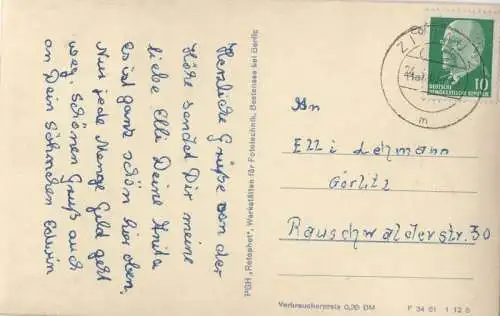 Herzliche Grüße von der
Höhe sendet Dir meine
liebe Elli Deine Anita
Es ist ganz schön hier oben,
Nur jede Menge Geld geht
weg. Schönen Gruß auch
an Dein Söhnchen Edwin
PGH „Rotophot“, Werkstätten für Fototechnik, Bestensee bei Berlin
DEUTSCHE
DEMOKRATISCHE REPUBLIK
10
m
An
Elli Lehmann
Görlitz
Rauschwalderstr. 30
Verbraucherpreis 0,20 DM